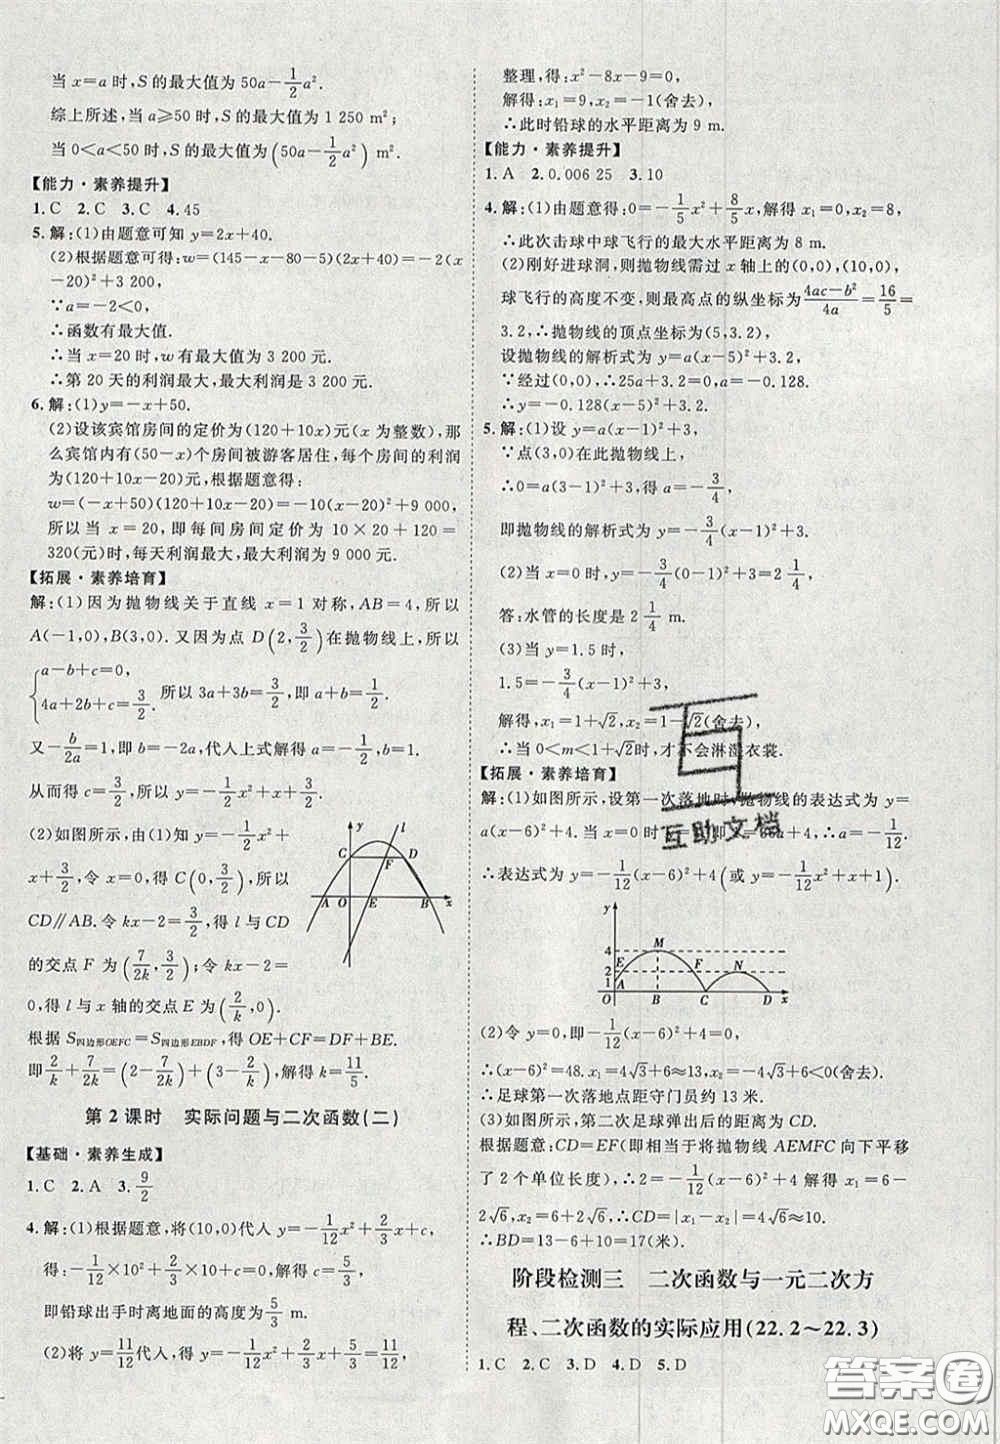 当 x=a 时,S 的最大值为 50a-1/2a².
综上所述,当 a≥50 时,S 的最大值为 1 250 m²;
当 0<a<50 时,S 的最大值为(50a-1/2a²) m².
【能力·素养提升】
1.C 2.C 3.C 4.45
5.解:(1)由题意可知 y=2x+40.
(2)根据题意可得:w=(145-x-80-5)(2x+40)=-2(x
-20)²+3 200,
∵a=-2<0,
∴函数有最大值.
∴当 x=20 时,w 有最大值为 3 200 元.
∴第 20 天的利润最大,最大利润是 3 200 元.
6.解:(1)y=-x+50.
(2)设该宾馆房间的定价为(120+10x)元(x 为整数),那
么宾馆内有(50-x)个房间被游客居住,每个房间的利润
为(120+10x-20)元,根据题意得:
w=(-x+50)(120+10x-20)=-10(x-20)²+9 000,
所以当 x=20,即每间房间定价为 10×20+120=
320(元)时,每天利润最大,最大利润为 9 000 元.
【拓展·素养培育】
解:(1)因为抛物线关于直线 x=1 对称,AB=4,所以
A(-1,0),B(3,0).又因为点 D(2,3/2)在抛物线上,所以
{a-b+c=0,
4a+2b+c=3/2. 所以 3a+3b=3/2,即 a+b=1/2.
又-b/2a=1,即 b=-2a,代入上式解得 a=-1/2,b=1.
从而得 c=3/2,即 y=-1/2x²+x+3/2.
(2)如图所示,由(1)知 y=-1/2x²+
x+3/2,令 x=0,得 C(0,3/2),所以
CD∥AB.令 kx-2=3/2,得 l 与 CD
的交点 F 为(7/2k,3/2);令 kx-2=
0,得 l 与 x 轴的交点 E 为(2/k,0),
根据 S四边形OEFC=S四边形EBDF,得 OE+CF=DF+BE.
即2/k+7/2k=(2-7/2k)+(3-2/k),解得 k=11/5.
y l C D F A O E B x
第 2 课时 实际问题与二次函数(二)
【基础·素养生成】
1.C 2.A 3.9/2
4.解:(1)根据题意,将(10,0)代入 y=-1/12x²+2/3x+c,
得:-1/12×10²+2/3×10+c=0,解得 c=5/3,
即铅球出手时离地面的高度为5/3 m.
(2)将 y=11/12代入,得:-1/12x²+2/3x+5/3=11/12,
整理,得:x²-8x-9=0,
解得:x₁=9,x₂=-1(舍去),
∴此时铅球的水平距离为 9 m.
【能力·素养提升】
1.A 2.0.006 25 3.10
4.解:(1)由题意得:0=-1/5x²+8/5x,解得 x₁=0,x₂=8,
∴此次击球中球飞行的最大水平距离为 8 m.
(2)刚好进球洞,则抛物线需过 x 轴上的(0,0),(10,0),
球飞行的高度不变,则最高点的纵坐标为4ac-b²/4a=16/5=
3.2,∴抛物线的顶点坐标为(5,3.2),
设抛物线的解析式为 y=a(x-5)²+3.2,
∵经过(0,0),∴25a+3.2=0,a=-0.128.
∴y=-0.128(x-5)²+3.2.
5.解:(1)设 y=a(x-1)²+3,
∵点(3,0)在此抛物线上,
∴0=a(3-1)²+3,得 a=-3/4,
即抛物线的解析式为 y=-3/4(x-1)²+3.
(2)当 x=0 时,y=-3/4(0-1)²+3=9/4,
答:水管的长度是 2 1/4 m.
(3)当 y=1.5 时,
1.5=-3/4(x-1)²+3,
解得,x₁=1+√2,x₂=1-√2(舍去),
∴当 0<m<1+√2时,才不会淋湿衣裳.
【拓展·素养培育】
解:(1)如图所示,设第一次落地时,抛物线的表达式为 y=
a(x-6)²+4.由已知:当 x=0 时 y=1,即 1=36a+4,∴a=-1/12.
∴表达式为 y=-1/12(x-6)²+4(或 y=-1/12x²+x+1).
y 4 M E F 2 N A 1 O B C D x
(2)令 y=0,即-1/12(x-6)²+4=0,
∴(x-6)²=48.x₁=4√3+6≈13,x₂=-4√3+6<0(舍去).
∴足球第一次落地点距守门员约 13 米.
(3)如图所示,第二次足球弹出后的距离为 CD,
根据题意:CD=EF(即相当于将抛物线 AEMFC 向下平移
了 2 个单位长度),∴2=-1/12(x-6)²+4 解得 x₁=6-
2√6,x₂=6+2√6,∴CD=|x₁-x₂|=4√6≈10(米).
∴BD=13-6+10=17(米).
阶段检测三 二次函数与一元二次方
程、二次函数的实际应用(22.2~22.3)
1.C 2.C 3.D 4.D 5.D
互助文档
答案圈
MXQE.COM